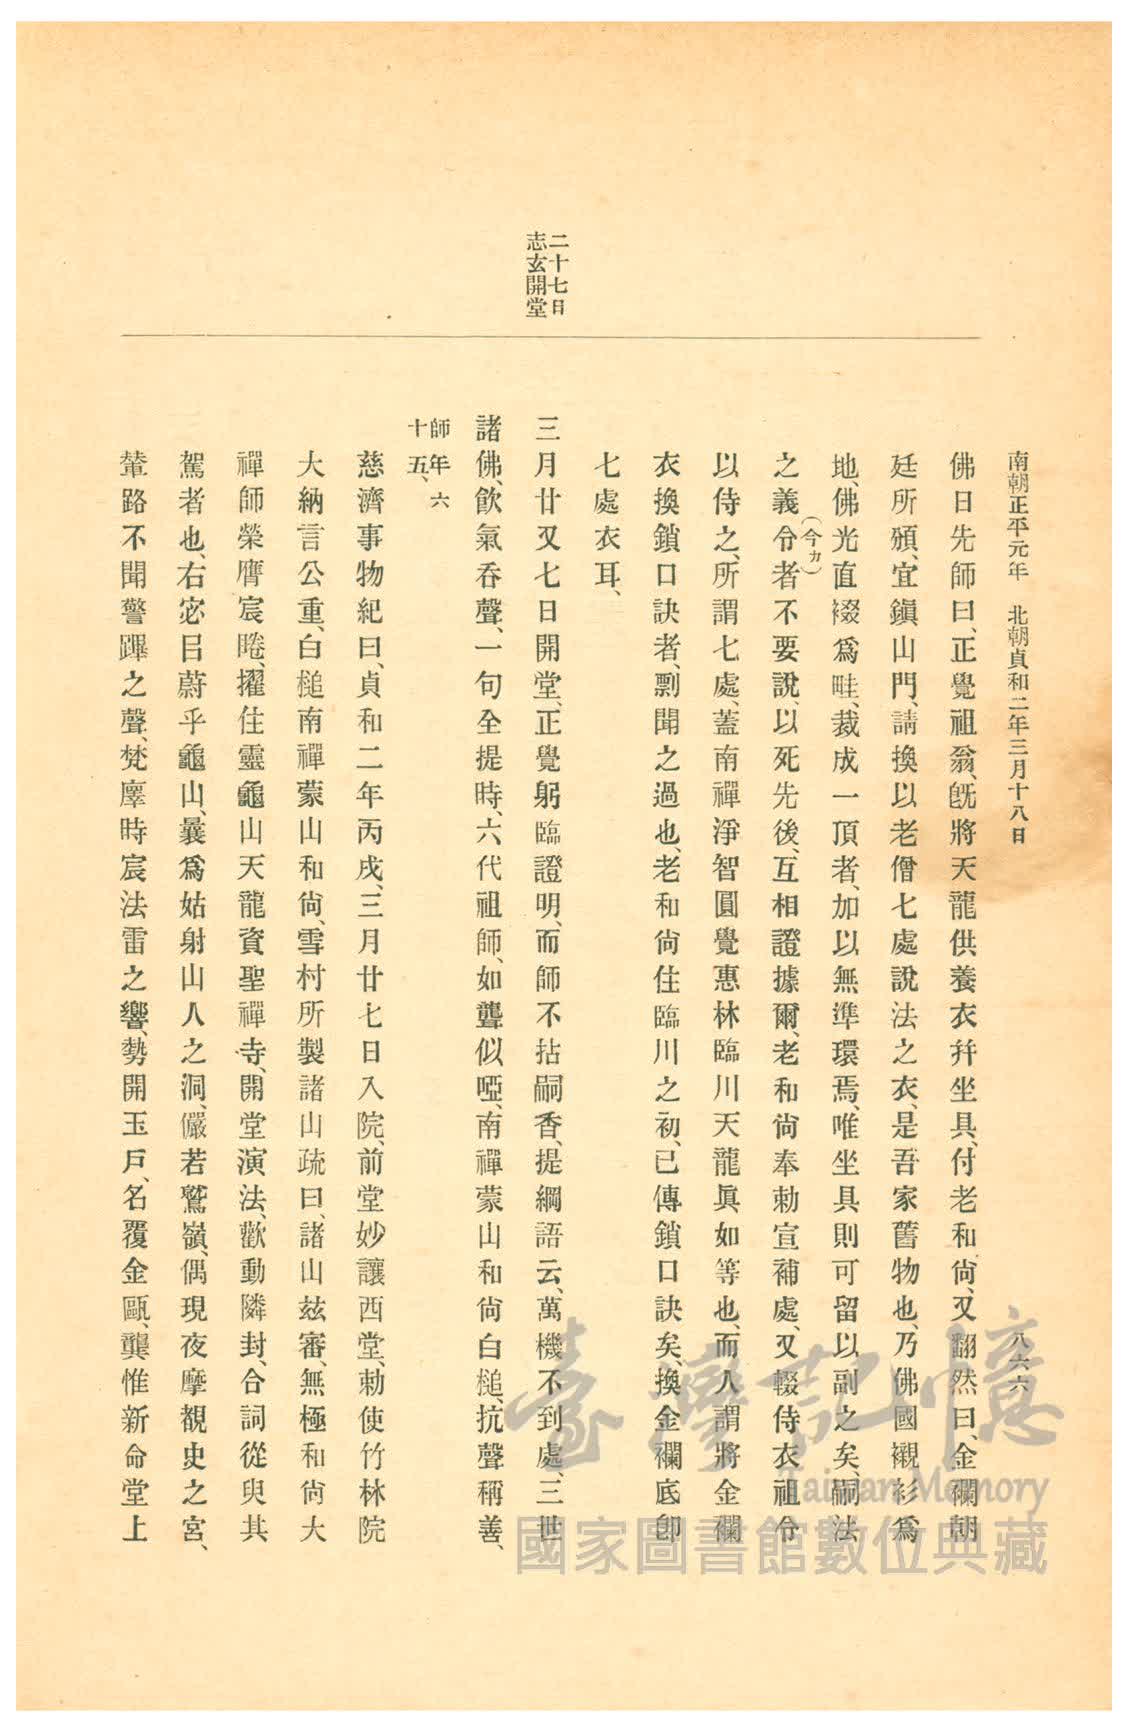 南朝正平元年　北朝貞和二年三月十八日
八六六
二十七日
志玄開堂
佛日先師曰、正覺祖翁、既將天龍供養衣幷坐具、付老和尙、又翻然曰、金襴朝
廷所頒、宜鎭山門、請換以老僧七處說法之衣、是吾家舊物也、乃佛國襯衫爲
地、佛光直裰爲畦、裁成一頂者、加以無準環焉、唯坐具則可留以副之矣、嗣法
之義令者不要說、以死先後、互相證據爾、老和尙奉勅宣補處、又輟侍衣祖令
（今カ）
以侍之、所謂七處、蓋南禪淨智圓覺惠林臨川天龍眞如等也、而人謂將金襴
衣換鎖口訣者、剽聞之過也、老和尙住臨川之初、已傳鎖口訣矣、換金襴底卽
七處衣耳、
三月廿又七日開堂、正覺躬臨證明、而師不拈嗣香、提綱語云、萬機不到處、三世
諸佛、飮氣呑聲、一句全提時、六代祖師、如聾似啞、南禪蒙山和尙白槌、抗聲稱善、
師年六
十五、
慈濟事物紀曰、貞和二年丙戌、三月廿七日入院、前堂妙讓西堂、勅使竹林院
大納言公重、白槌南禪蒙山和尙、雪村所製諸山疏曰、諸山玆審、無極和尙大
禪師榮膺宸睠、擢住靈龜山天龍資聖禪寺、開堂演法、歡動隣封、合詞從臾其
駕者也、右宓㠯蔚乎龜山、曩爲姑射山人之洞、儼若鷲嶺、偶現夜摩覩史之宮、
輦路不聞警蹕之聲、梵廛時宸法雷之響、勢開玉戶、名覆金甌、龔惟新命堂上
臺灣記憶
Taiwan Memory
國家圖書館數位典藏